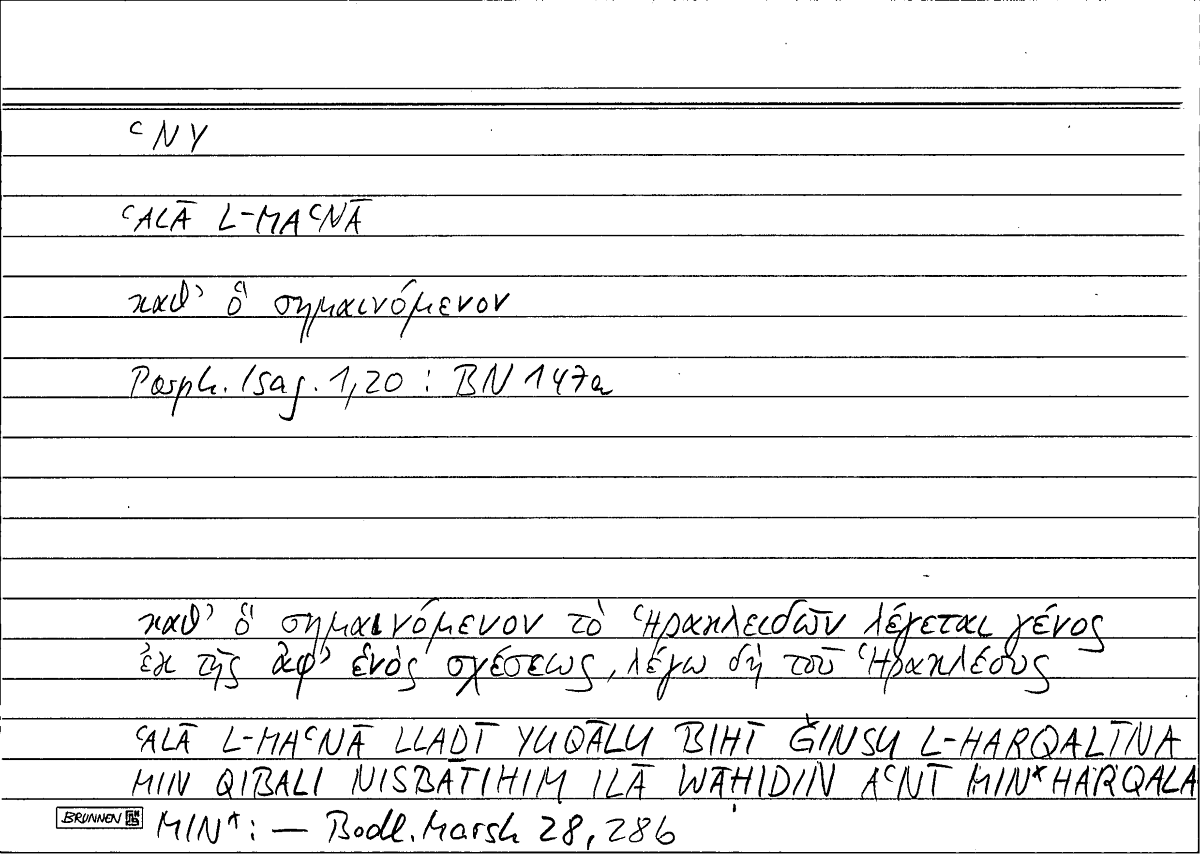 ʿNY
ʿALĀ L-MAʿNĀ
καθ' ὃ σημαινόμενον
Porph. Isag. 1,20 : BN 147a
καθ' ὃ σημαινόμενον τὸ Ἡρακλειδῶν λέγεται γένος
ἐκ τῆς ἀφ' ἑνὸς σχέσεως, λέγω δὴ τοῦ Ἡρακλέους
ʿALĀ L-MAʿNĀ LLAḎĪ YUQĀLU BIHĪ ǦINSU L-HARQALĪNA
MIN QIBALI NISBATIHIM ILĀ WĀḤIDIN AʿNĪ MIN* HARQALA
BRUNNEN MIN*: — Bodl. Marsh 28, 28b